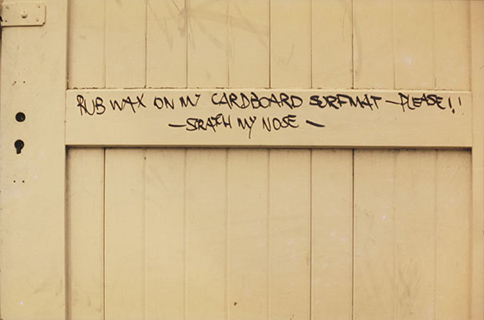 RUB WAX ON MY CARDBOARD SURFMAT – PLEASE!!
– SCRATCH MY NOSE –